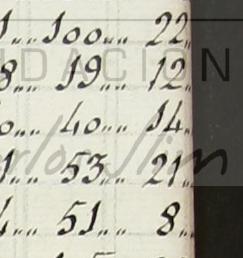 1,,, 100,,, 22,,
8,,, 19,,, 12,,
0,,, 40,,, 14,,
1,,, 53,,, 21,,
4,,, 51,,, 8,,
DACIÓN
Carlos Slim